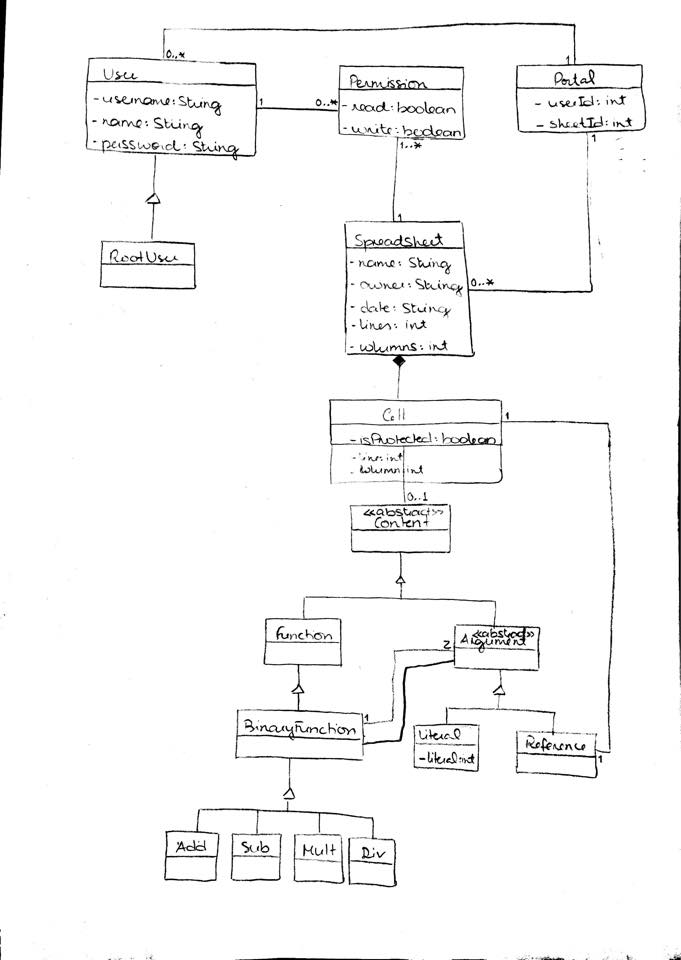 0..*
1
User
- username: String
- name: String
- password: String
1
0..*
Permission
- read: boolean
- write: boolean
1..*
Portal
- userId: int
- sheetId: int
1
RootUser
1
SpreadSheet
- name: String
- owner: String
- date: String
- lines: int
- columns: int
0..*
Cell
- isProtected: boolean
- line: int
- column: int
1
0..1
<<abstract>>
Content
Function
2
<<abstract>>
Argument
1
BinaryFunction
Literal
- literal: int
Reference
1
Add
Sub
Mult
Div